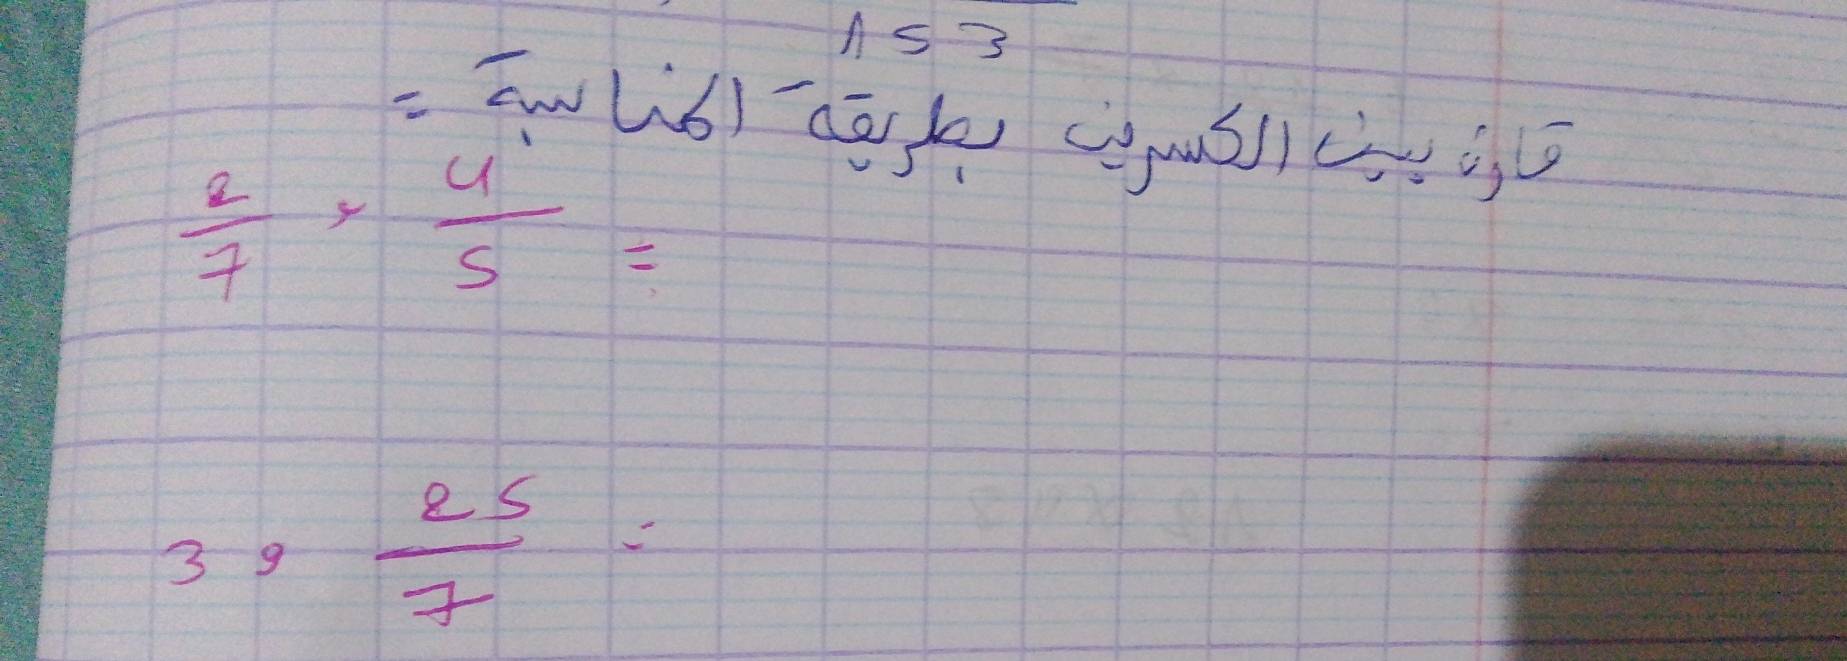 153
قارن بين الكسرين بطريقة المناسبة =
2/7 و 4/5 =
3 و 25/7 =